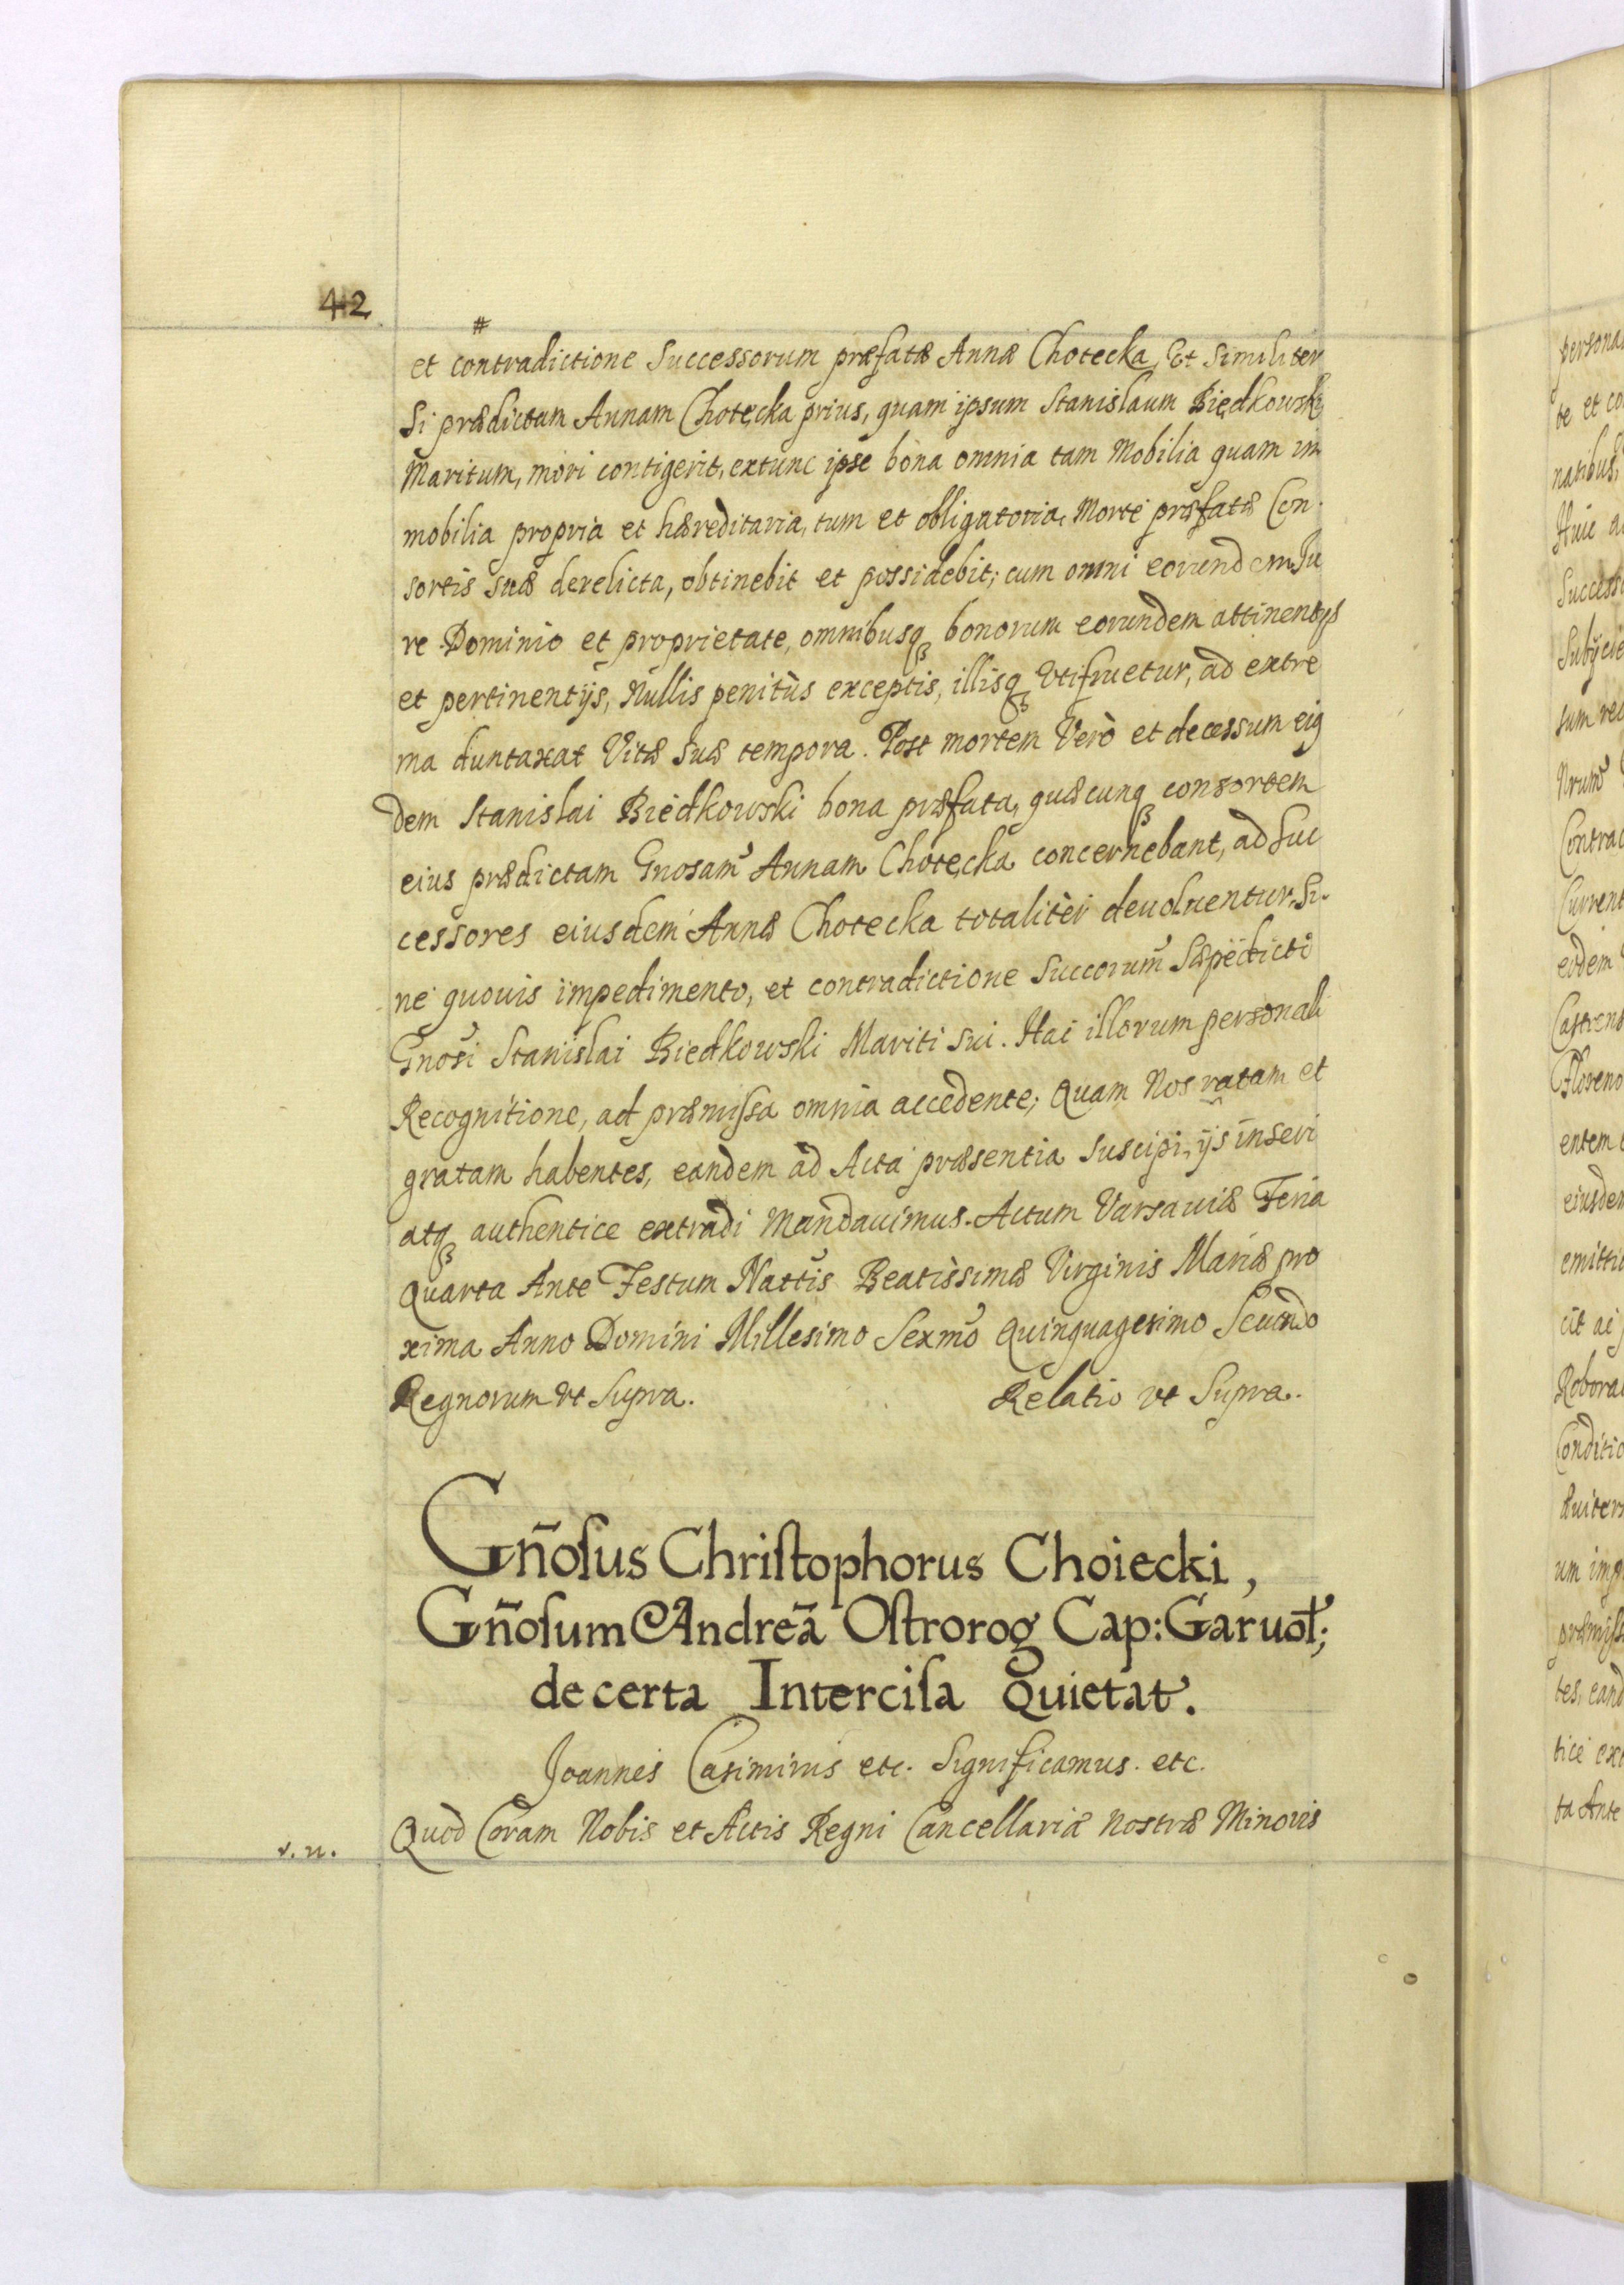 412
#
et contradictione Successorum præfatæ Annæ Chotecka, Et Similiter
Si prædictam Annam Chotecka prius, quam ipsum Stanislaum Biedkowski
Maritum, mori contigerit, extunc ipse bona omnia tam Mobilia quam im
mobilia propria et hæreditaria, tum et obligatoria, Morte præfatæ Con
sortis suæ derelicta, obtinebit et possidebit; cum omni eorundem Ju
re Dominio et proprietate, omnibusq bonorum eorundem attinentijs
et pertinentijs, Nullis penitùs exceptis, illisq Vtifruetur, ad extre
ma duntaxat Vitæ Suæ tempora. Post mortem Verò et decessum eiq
dem Stanislai Biedkowski bona præfata, quæcunq consortem
eius prædictam Gnosam Annam Chotecka concernebant, ad Suc
cessores eiusdem Annæ Chotecka totalitèr deuoluentur, Si
ne quouis impedimento, et contradictione Succorum Sæpedicti
Gnosi Stanislai Biedkowski Mariti sui. Hac illorum personali
Recognitione, ad præmissa omnia accedente; Quam Nos ratam et
gratam habentes, eandem ad Acta præsentia Suscipi, ijs inseri
atq authentice extradi Mandauimus. Actum Varsauiæ Feria
Quarta Ante Festum Nattis Beatissimæ Virginis Mariæ pro
xima Anno Domini Millesimo Sexmo Quinquagesimo Scundo
Regnorum vt Supra. Relatio vt Supra.
Gñosus Christophorus Choiecki,
Gñosum Andreã Ostrorog Cap: Garuoł;
de certa Intercisa Quietat.
Joannes Casimirus etc. Significamus. etc.
v. n. Quod Coram Nobis et Actis Regni Cancellariæ Nostræ Minoris